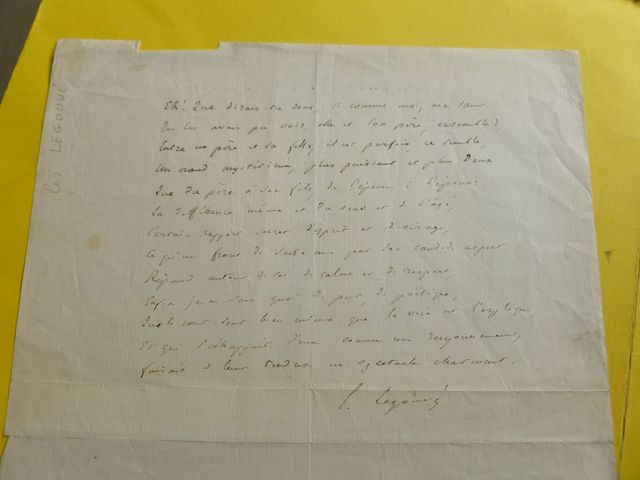 LEGOUVÉ
Eh! Que dirais-tu donc, si comme moi, ma sœur
Tu les avais pu voir, elle et son père, ensemble?
Entre un père et sa fille, il est parfois, ce semble,
Un nœud mystérieux, plus puissant et plus doux
Que du père à son fils de l'épouse à l'époux:
La différence même et du sexe et de l'âge,
Certain rapport secret d'esprit et de visage,
Ce qu'un front de seize ans par son candide aspect
Répand autour de soi de calme et de respect,
Enfin je ne sais quoi de pur, de poétique,
Que le cœur sent bien mieux que la voix ne l'explique,
Et qui s'échappait d'eux comme un rayonnement,
faisait de leur tendresse un spectacle charmant.
E. Legouvé